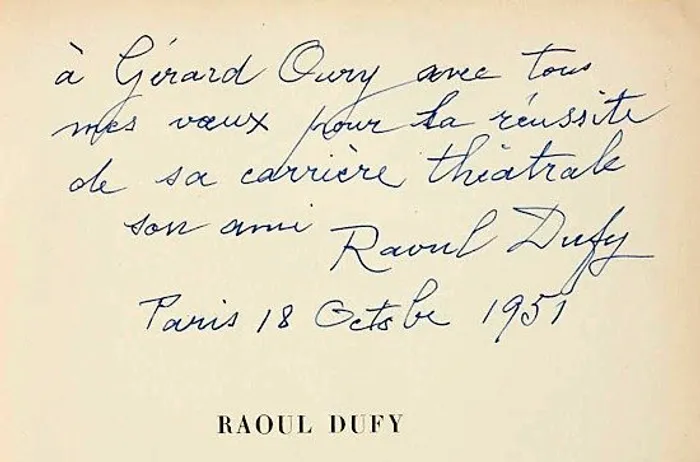 à Gérard Oury avec tous
mes vœux pour la réussite
de sa carrière théatrale
son ami Raoul Dufy
Paris 18 Octobe 1951
RAOUL DUFY